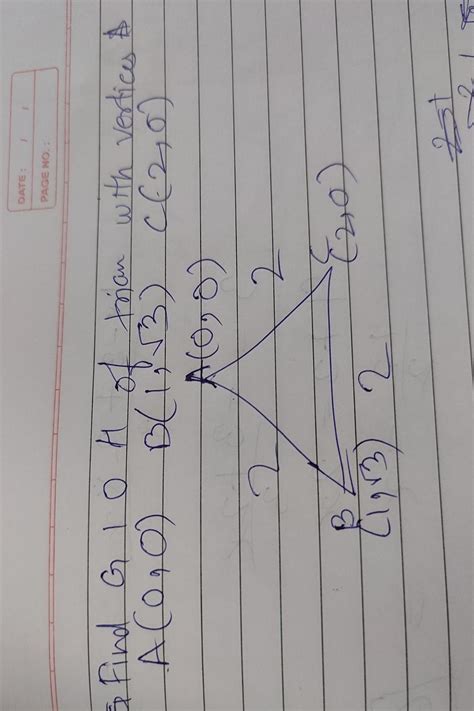 DATE: / /
PAGE NO.:
Q Find G I O H of trian with vertices
A(0,0) B(1,√3) C(-2,0)
A(0,0)
2 2
B C
(1,√3) 2 (2,0)